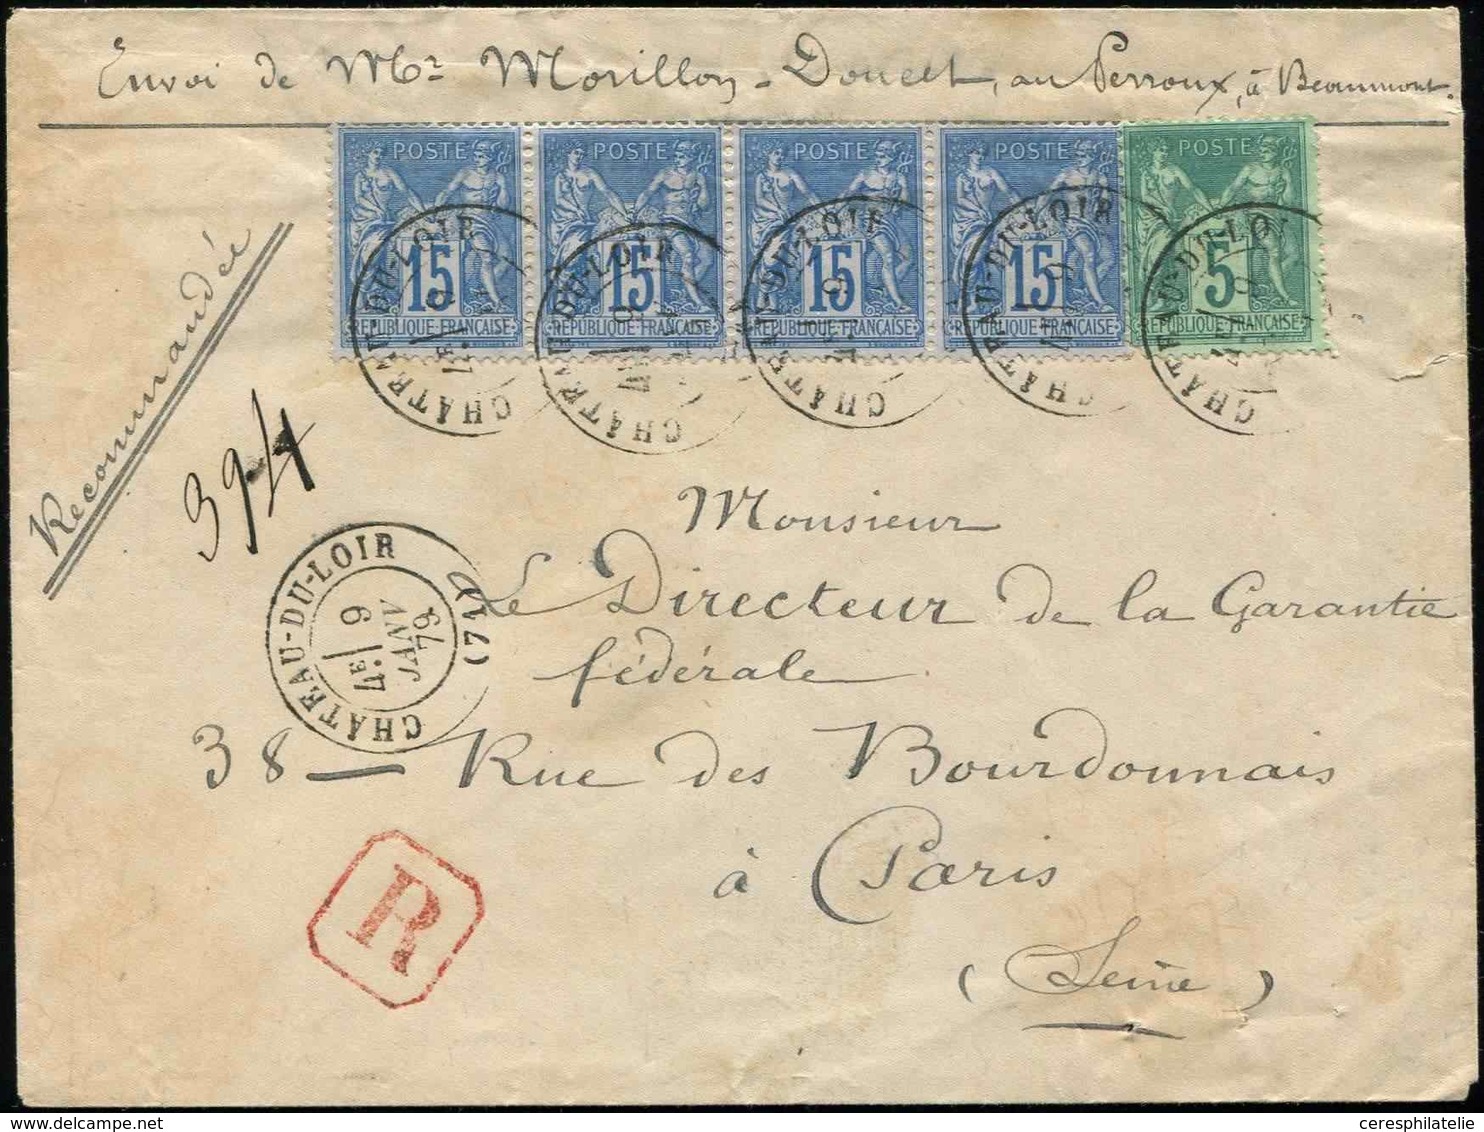 Envoi de Mr. Morillon-Doucet, au Perroux, à Beaumont.
POSTE POSTE POSTE POSTE POSTE
15 15 15 15 5
REPUBLIQUE FRANÇAISE REPUBLIQUE FRANÇAISE REPUBLIQUE FRANÇAISE REPUBLIQUE FRANÇAISE REPUBLIQUE FRANÇAISE
CHATEAU-DU-LOIR CHATEAU-DU-LOIR CHATEAU-DU-LOIR CHATEAU-DU-LOIR CHATEAU-DU-LOI
4E 9
Recommandée
394
CHATEAU-DU-LOIR (71)
4E 9
JANV
79
Monsieur
Le Directeur de la Garantie
fédérale
38 — Rue des Bourdonnais
à Paris
(Seine)
R
ceresphilatelie